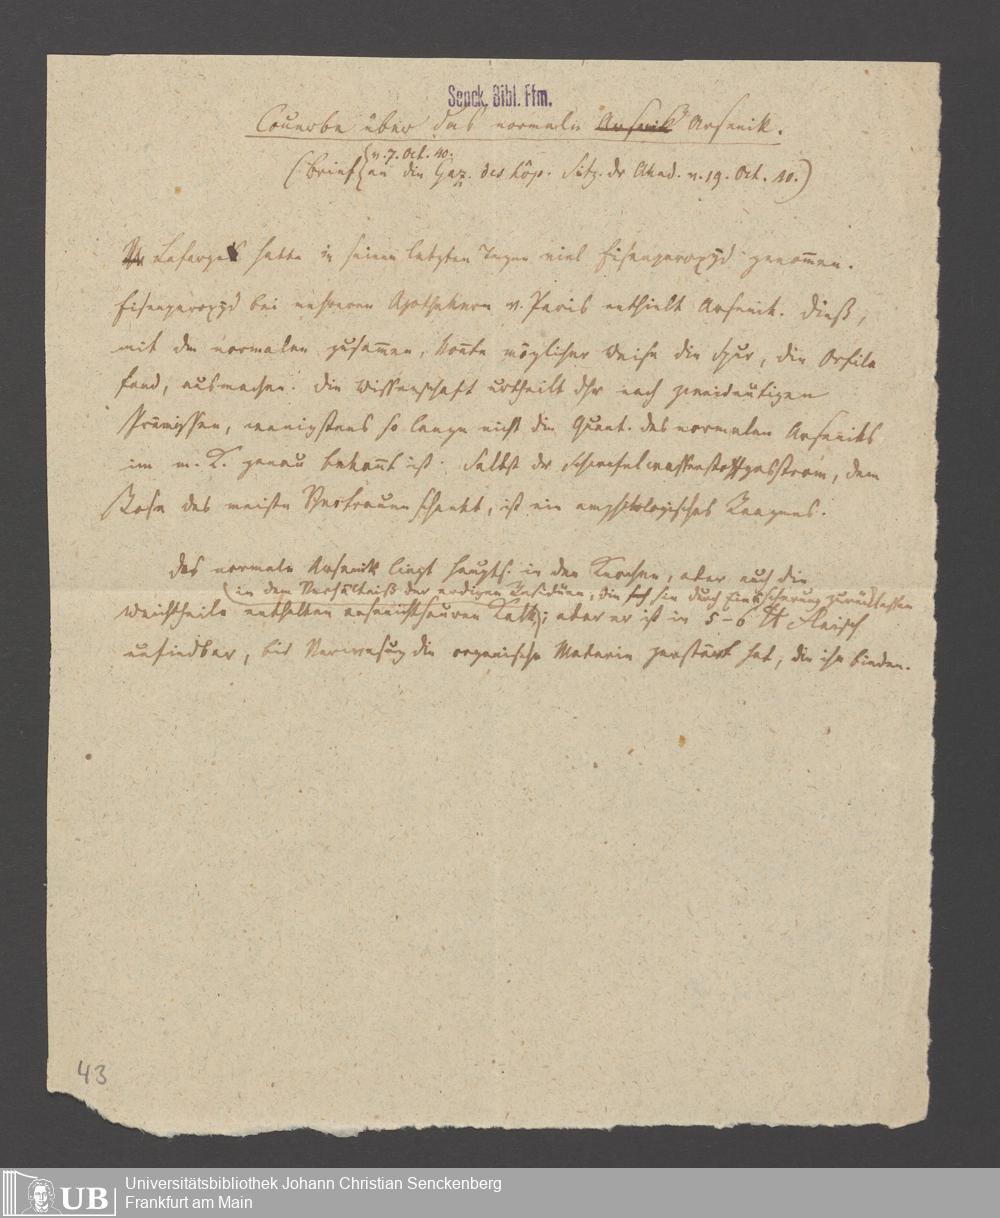 Senck. Bibl. Ffm.
Couerbe über das normale Arsenik Arsenik.
{v. 7. Oct. 40.
(Brief an die Gaz. des hôp. Sitz. der Akad. v. 19. Oct. 40.)
Lafarge hatte in seinen letzten Tagen viel Eisenperoxyd genom̄en.
Eisenperoxyd bei mehreren Apothekern v. Paris enthielt Arsenik. Dieß,
mit dem normalen zusam̄en, kon̄te möglicher Weise die Spur, die Orfila
fand, ausmachen. Die Wissenschaft urtheilt dhr nach zweideutigen
Prämissen, wenigstens so lange nicht die Quant. des normalen Arseniks
im m. K. genau bekan̄t ist. Selbst der Schwefelwasserstoffgasstrom, dem
Rose das meiste Vertrauen schenkt, ist ein amphibologisches Reagens.
Das normale Arsenik liegt haupts. in den Knochen, aber auch die
(in dem Verhältniß der erdigen Residuen, die sich sie durch Einäscherung zurücklassen
Weichtheile enthalten arsenikssauren Kalk); aber er ist in 5–6 ℔ Fleisch
unfindbar, bis Verwesung die organische Materie zerstört hat, die ihn binden.
43
UB
Universitätsbibliothek Johann Christian Senckenberg
Frankfurt am Main